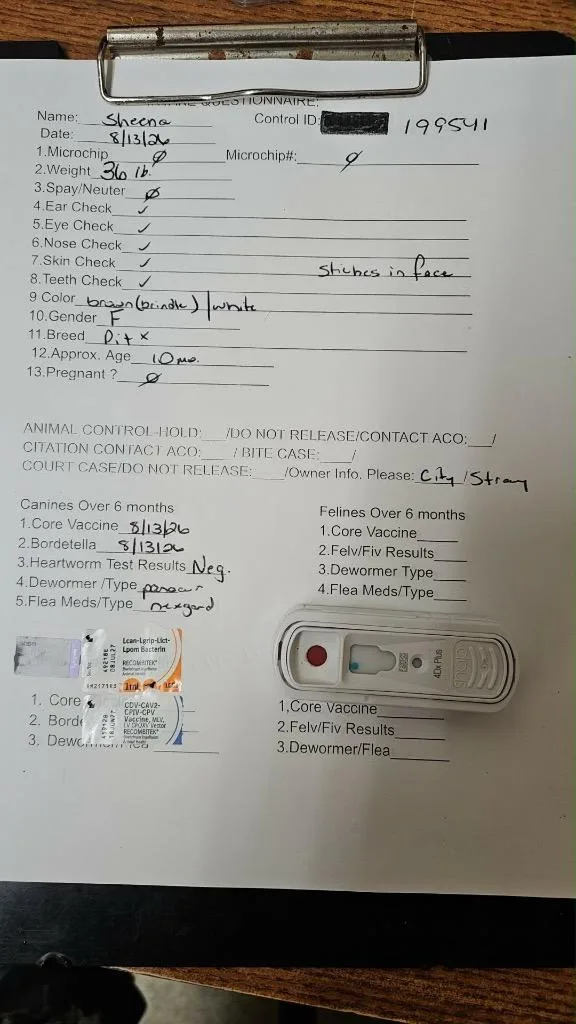 QUESTIONNAIRE:
Name: Sheena Control ID: 199541
Date: 8/13/26
1.Microchip Ø Microchip#: Ø
2.Weight 36 lb.
3.Spay/Neuter Ø
4.Ear Check ✓
5.Eye Check ✓
6.Nose Check ✓
7.Skin Check ✓ Stiches in face
8.Teeth Check ✓
9 Color brown(brindle) / white
10.Gender F
11.Breed Pit x
12.Approx. Age 10 mo.
13.Pregnant ? Ø
ANIMAL CONTROL-HOLD:___/DO NOT RELEASE/CONTACT ACO:___/
CITATION CONTACT ACO:____ / BITE CASE:____/
COURT CASE/DO NOT RELEASE:____/Owner Info. Please: City/Stray
Canines Over 6 months
1.Core Vaccine 8/13/26
2.Bordetella 8/13/26
3.Heartworm Test Results Neg.
4.Dewormer /Type panacur
5.Flea Meds/Type nexgard
Felines Over 6 months
1.Core Vaccine____
2.Felv/Fiv Results____
3.Dewormer Type____
4.Flea Meds/Type____
Lcan-Lgrip-Lict-
Lpom Bacterin
RECOMBITEK
1ml
49218E
08JUL27
CDV-CAV2-
CPIV-CPV
Vaccine, MLV,
RECOMBITEK
4Dx Plus
snap
1. Core
2. Borde
3. Dewo
1,Core Vaccine
2.Felv/Fiv Results
3.Dewormer/Flea